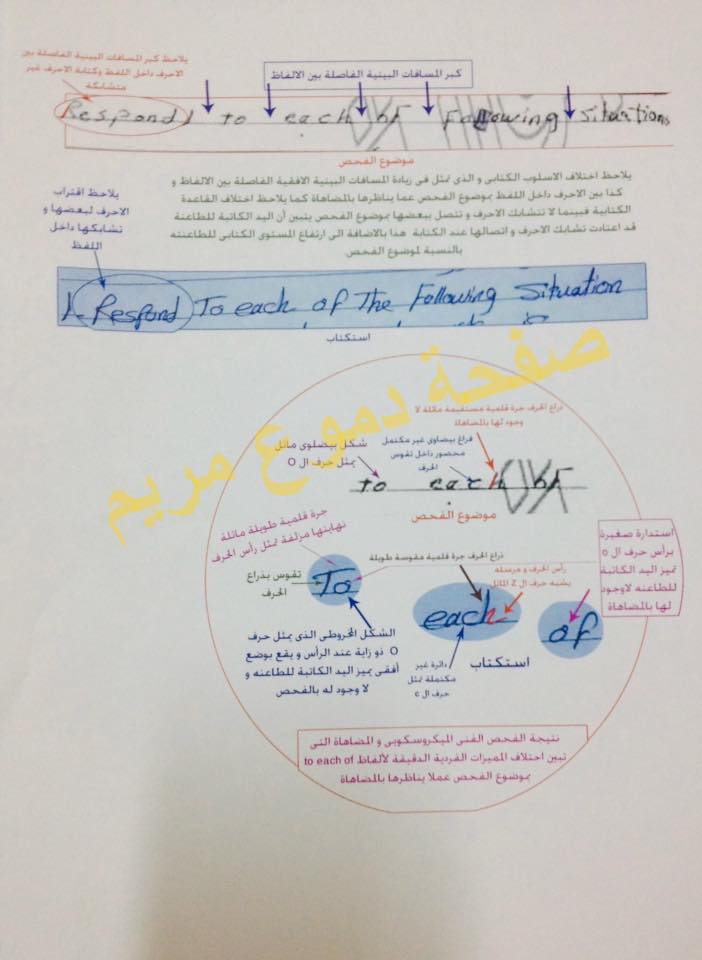 يلاحظ كبر المسافات البينية الفاصلة بين
الاحرف داخل اللفظ وكتابة الاحرف غير
متشابكة
كبر المسافات البينية الفاصلة بين الالفاظ
Respond to each of Following Situations
موضوع الفحص
يلاحظ اختلاف الاسلوب الكتابى و الذى تمثل فى زيادة المسافات البينية الافقية الفاصلة بين الالفاظ و
كذا بين الاحرف داخل اللفظ بموضوع الفحص عما يناظرها بالمضاهاة كما يلاحظ اختلاف القاعدة
الكتابية فبينما لا تتشابك الاحرف و تتصل ببعضها بموضوع الفحص يتبين أن اليد الكاتبة للطاعنة
قد اعتادت تشابك الاحرف و اتصالها عند الكتابة هذا بالاضافة الى ارتفاع المستوى الكتابى للطاعنته
بالنسبة لموضوع الفحص.
يلاحظ اقتراب
الاحرف لبعضها و
تشابكها داخل
اللفظ
1- Respond To each of The Following Situation
استكتاب
صفحة دموع مريم
ذراع الحرف جرة قلمية مستقيمة مائلة لا
وجود لها بالمضاهاة
فراغ بيضاوى غير مكتمل
محصور داخل تقوس
الحرف
شكل بيضاوى مائل
يمثل حرف ال O
to each of
موضوع الفحص
جرة قلمية طويلة مائلة
نهايتها مزلفة تمثل رأس الحرف
ذراع الحرف جرة قلمية مقوسة طويلة
استدارة صغيرة
برأس حرف ال o
تميز اليد الكاتبة
للطاعنه لاوجود
لها بالمضاهاة
رأس الحرف و مرسله
يشبه حرف ال Z المائل
تقوس بذراع
الحرف
To
each
of
الشكل المخروطى الذى يمثل حرف
O ذو زاية عند الرأس و يقع بوضع
أفقى يميز اليد الكاتبة للطاعنه و
لا وجود له بالفحص
دائرة غير
مكتملة تمثل
حرف ال c
استكتاب
نتيجة الفحص الفنى الميكروسكوبى و المضاهاة التى
تبين اختلاف المميزات الفردية الدقيقة لألفاظ to each of
بموضوع الفحص عملا يناظرها بالمضاهاة